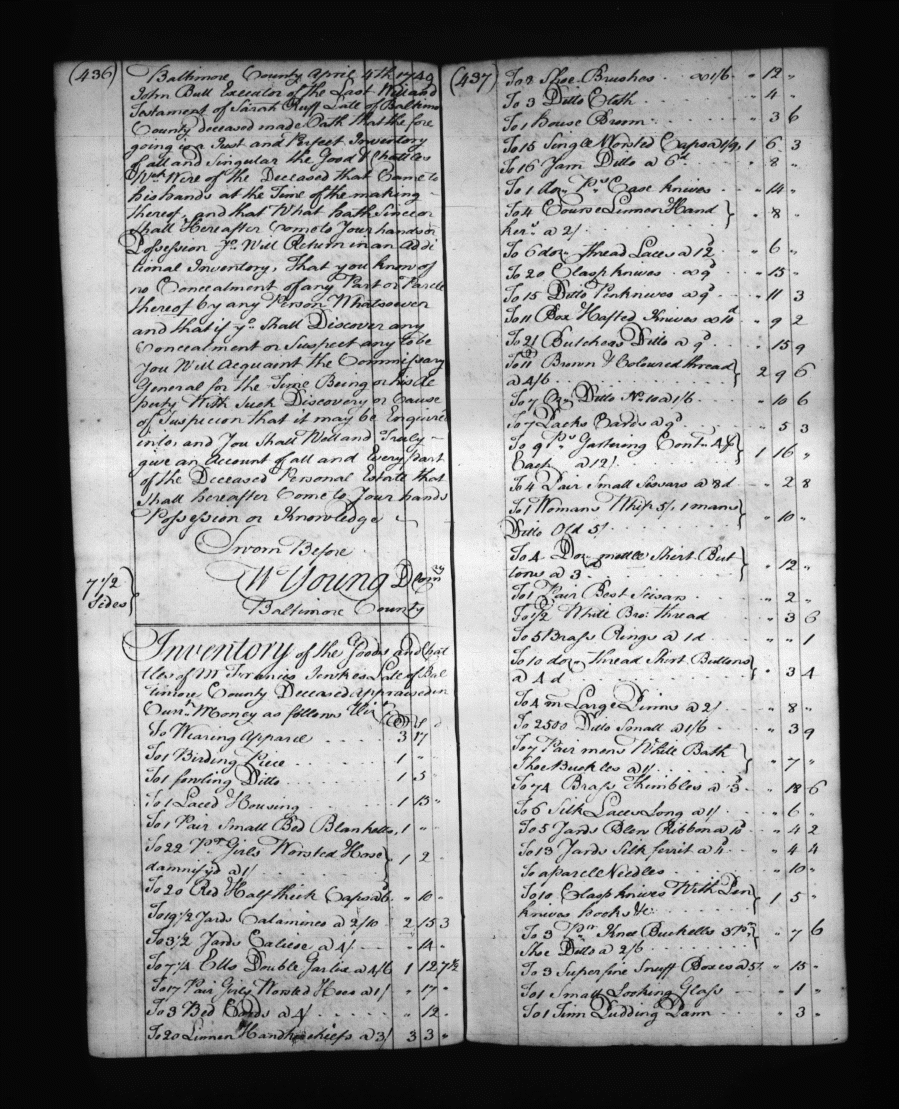 (436)
Baltimore County April 4th 1749
John Bull Executor of the Last Will and
Testament of Sarah Ruff Late of Baltimo
County deceased made Oath that the fore
going is a Just and Perfect Inventory
of all and Singular the Good & Chattles
Wch Were of the Deceased that Came to
his hands at the Time of the making
thereof, and that What hath Since or
Shall Hereafter Come to Your hands or
Possession yo. Will Return in an Addi
tional Inventory, That you know of
no Concealment of any Part or Parcle
thereof by any Person Whatsoever
and that if yo. Shall Discover any
Concealment or Suspect any to be
you Will Acquaint the Commissary
General for the Time Being or his De
puty With Such Discovery or Cause
of Suspicion that it may be Enquired
into, and You Shall Well and Truly
give an Account of all and Every Part
of the Deceased Personal Estate that
Shall hereafter Come to Your hands
Possession or Knowledge
Sworn Before
W Young D Comry
Baltimore County
7 1/2
Sides
Inventory of the Goods and Chat
tles of Mr Francis Jenkes Late of Bal
timore County Deceased Appraised in
Curr. Money as follows Vizt
To Wearing Apparel 3 17
To 1 Birding Piece 1 "
To 1 fowling Ditto 1 5 "
To 1 Laced Housing 1 15 "
To 1 Pair Small Bed Blanketts 1 " "
To 22 Pr Girls Worsted Hose
damnifyd a 1/ 1 2 "
To 20 Red Half thick Caps a 6 " 10 "
To 19 1/2 Yards Calamines a 2/10 2 15 3
To 3 1/2 Yards Calicoe a 4/ " 14 "
To 7 1/4 Ells Double Garlix a 4/6 1 12 7 1/2
To 17 Pair Girls Worsted Hoes a 1/ " 17 "
To 3 Bed Cords a 4/ " 12 "
To 20 Linnen Handkerchiefs a 3/ 3 3 "
(437)
To 8 Shoe Brushes a 1/6 " 12 "
To 3 Ditto Cloth " 4 "
To 1 house Broom " 3 6
To 15 Single Worsted Caps a 1/9 1 6 3
To 16 Yarn Ditto a 6d " 8 "
To 1 doz Prs Case knives " 14 "
To 4 Course Linnen Hand
kers a 2/ " 8 "
To 6 doz thread Laces a 12d " 6 "
To 20 Clasp knives a 9d " 15 "
To 15 Ditto Penknives a 9d " 11 3
To 11 Box Hafted Knives a 10d " 9 2
To 21 Butchers Ditto a 9d " 15 9
To 11 Brown & Coloured thread
a 4/6 2 9 6
To 7 Ditto No 10 a 1/6 " 10 6
To 7 Packs Cards a 9d " 5 3
To 9 Ps Gartering
Each a 12/ 1 16 "
To 4 Pair Small Sissars a 8d " 2 8
To 1 Womans Whip 5/. 1 mans
Ditto Old 5/ " 10 "
To 4 Doz mettle Shirt But
tons a 3 " 12 "
To 1 Pair Best Scisars " 2 "
To 1/2 White Bro: thread " 3 6
To 5 Brass Rings a 1d " " 1
To 10 doz Thread Shirt Buttons
a 4 d " 3 4
To 4 m Large Pinns a 2/ " 8 "
To 2500 Ditto Small a 1/6 " 3 9
To 7 Pair mens White Bath
Shoe Buckles a 1/ " 7 "
To 74 Brass Thimbles a 3d " 18 6
To 6 Silk Laces Long a 1/ " 6 "
To 5 Yards Blew Ribbon a 10d " 4 2
To 13 Yards Silk ferrit a 4d " 4 4
To a parcle Needles " 10 "
To 10 Clasp knives With Pen
knives hooks &c 1 5 "
To 3 Pr Knee Buckells 3 Pr
Shoe Ditto a 2/6 " 7 6
To 3 Superfine Snuff Boxes a 5/ " 15 "
To 1 Small Looking Glass " 1 "
To 1 Tinn Pudding Pann " 3 "